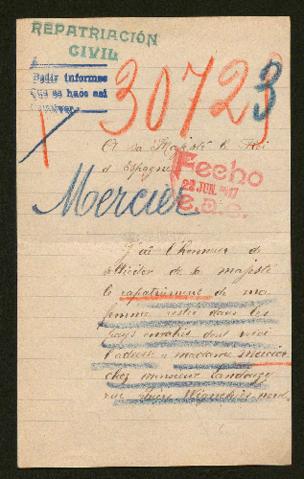 REPATRIACIÓN
CIVIL
Pedir informes
que se hace así
30723
A sa Majesté le Roi
d'Espagne
Fecho
22 JUN. 1917
Mercier
J'ai l'honneur de
de sa majesté
le rapatriment de ma
femme restée dans les
pays envahis dont voici
l'adresse madame mercier
chez monsieur Landouzy
rue Wignehies nord